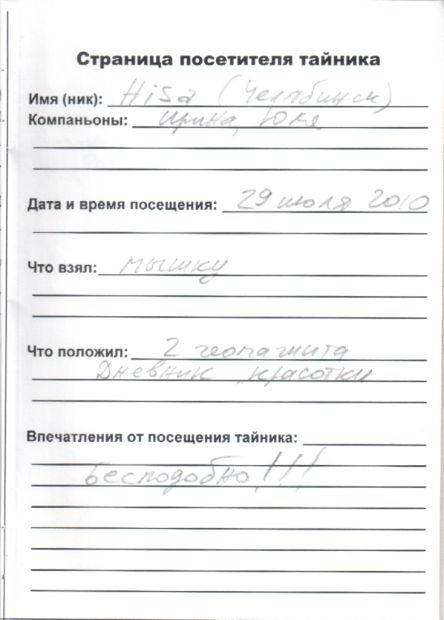 Страница посетителя тайника
Имя (ник): Hisa (Челябинск)
Компаньоны: Ирина, Юля
Дата и время посещения: 29 июля 2010
Что взял: мышку
Что положил: 2 геомагнита
Дневник "красотки
Впечатления от посещения тайника:
Бесподобно!!!